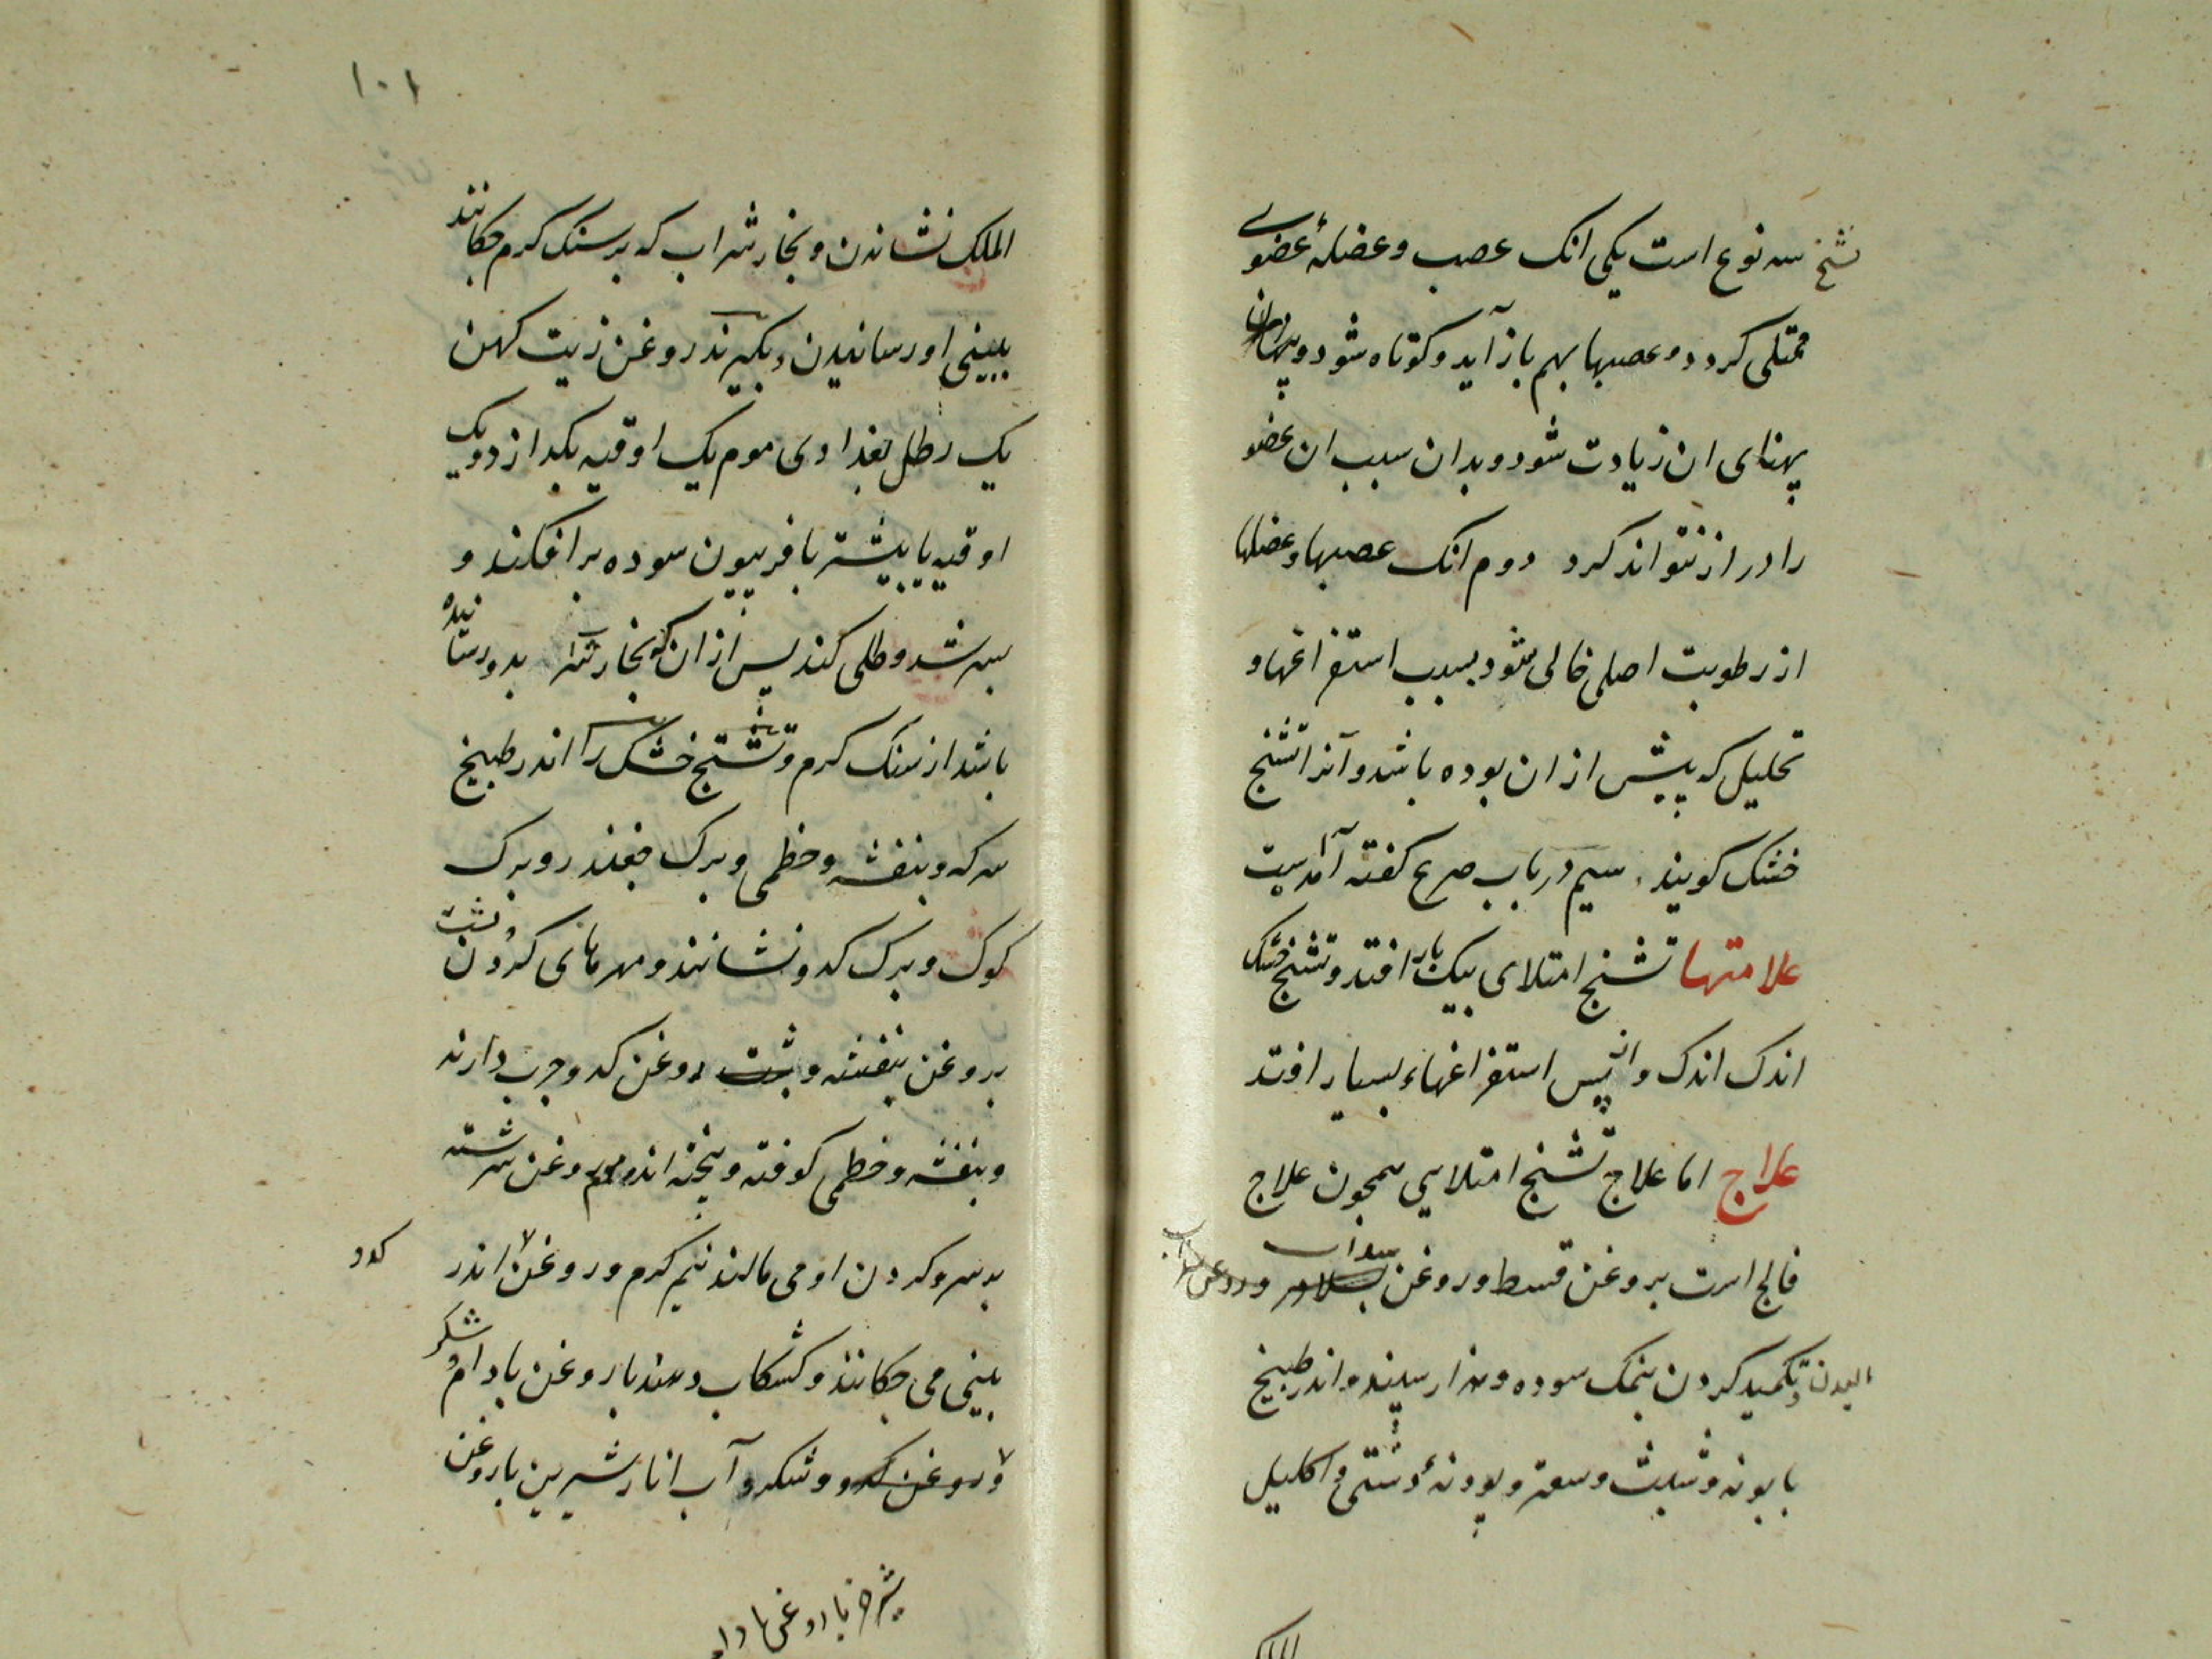 تشنج سه نوع است یکی انک عصب و عضلۀ عضوی
ممتلی کردد و عصبها بهم باز آید و کوتاه شود و
پهنای ان زیادت شود و بدان سبب ان عضو
را دراز نتواند کرد دوم انک عصبها و عضلها
از رطوبت اصلی خالی شود بسبب استفراغها و
تحلیل که پیش از ان بوده باشد و آنرا تشنج
خشک کویند . سیم در باب صرع کفته آمدست
علامتها تشنج امتلای بیک بار افتد و تشنج خشک
اندک اندک و از پس استفراغهاء بسیار افتد
علاج اما علاج تشنج امتلایی همچون علاج
فالج است بروغن قسط و روغن سداب بلادر و روغن
الیدن و تکمید کردن بنمک سوده و اندر طبیخ
بابونه و شبث و سعتر و پودنۀ دشتی و اکلیل
الملک
۱۰۱
الملک نشاندن و بخار شراب که بر سنک کرم چکانند
ببینی او رسانیدن و بکیرند روغن زیت کهن
یک رطل بغدادی موم یک اوقیه بکدازد و یک
اوقیه یا بیشتر یا فربیون سوده برافکند و
بسرشد و طلی کند پس از ان که بخار بدو رسانیده
باشد از سنک کرم و تشنج خشک را اندر طبیخ
سرکه و بنفشه و خطمی و برک جغندر و برک
کوک و برک کدو نشانند و مهرهای کردن و پشت
بروغن بنفشه و پشت روغن کدو چرب دارند
و بنفشه و خطمی کوفته و پخته اندر موم روغن سرشته
بر سر و کردن او می مالند نیم کرم و روغن اندر
کدو
بینی می چکانند و کشکاب دهند با روغن بادام و شکر
و روغن کدو و شکر و آب انار شیرین با روغن
شیر خر با روغن بادام